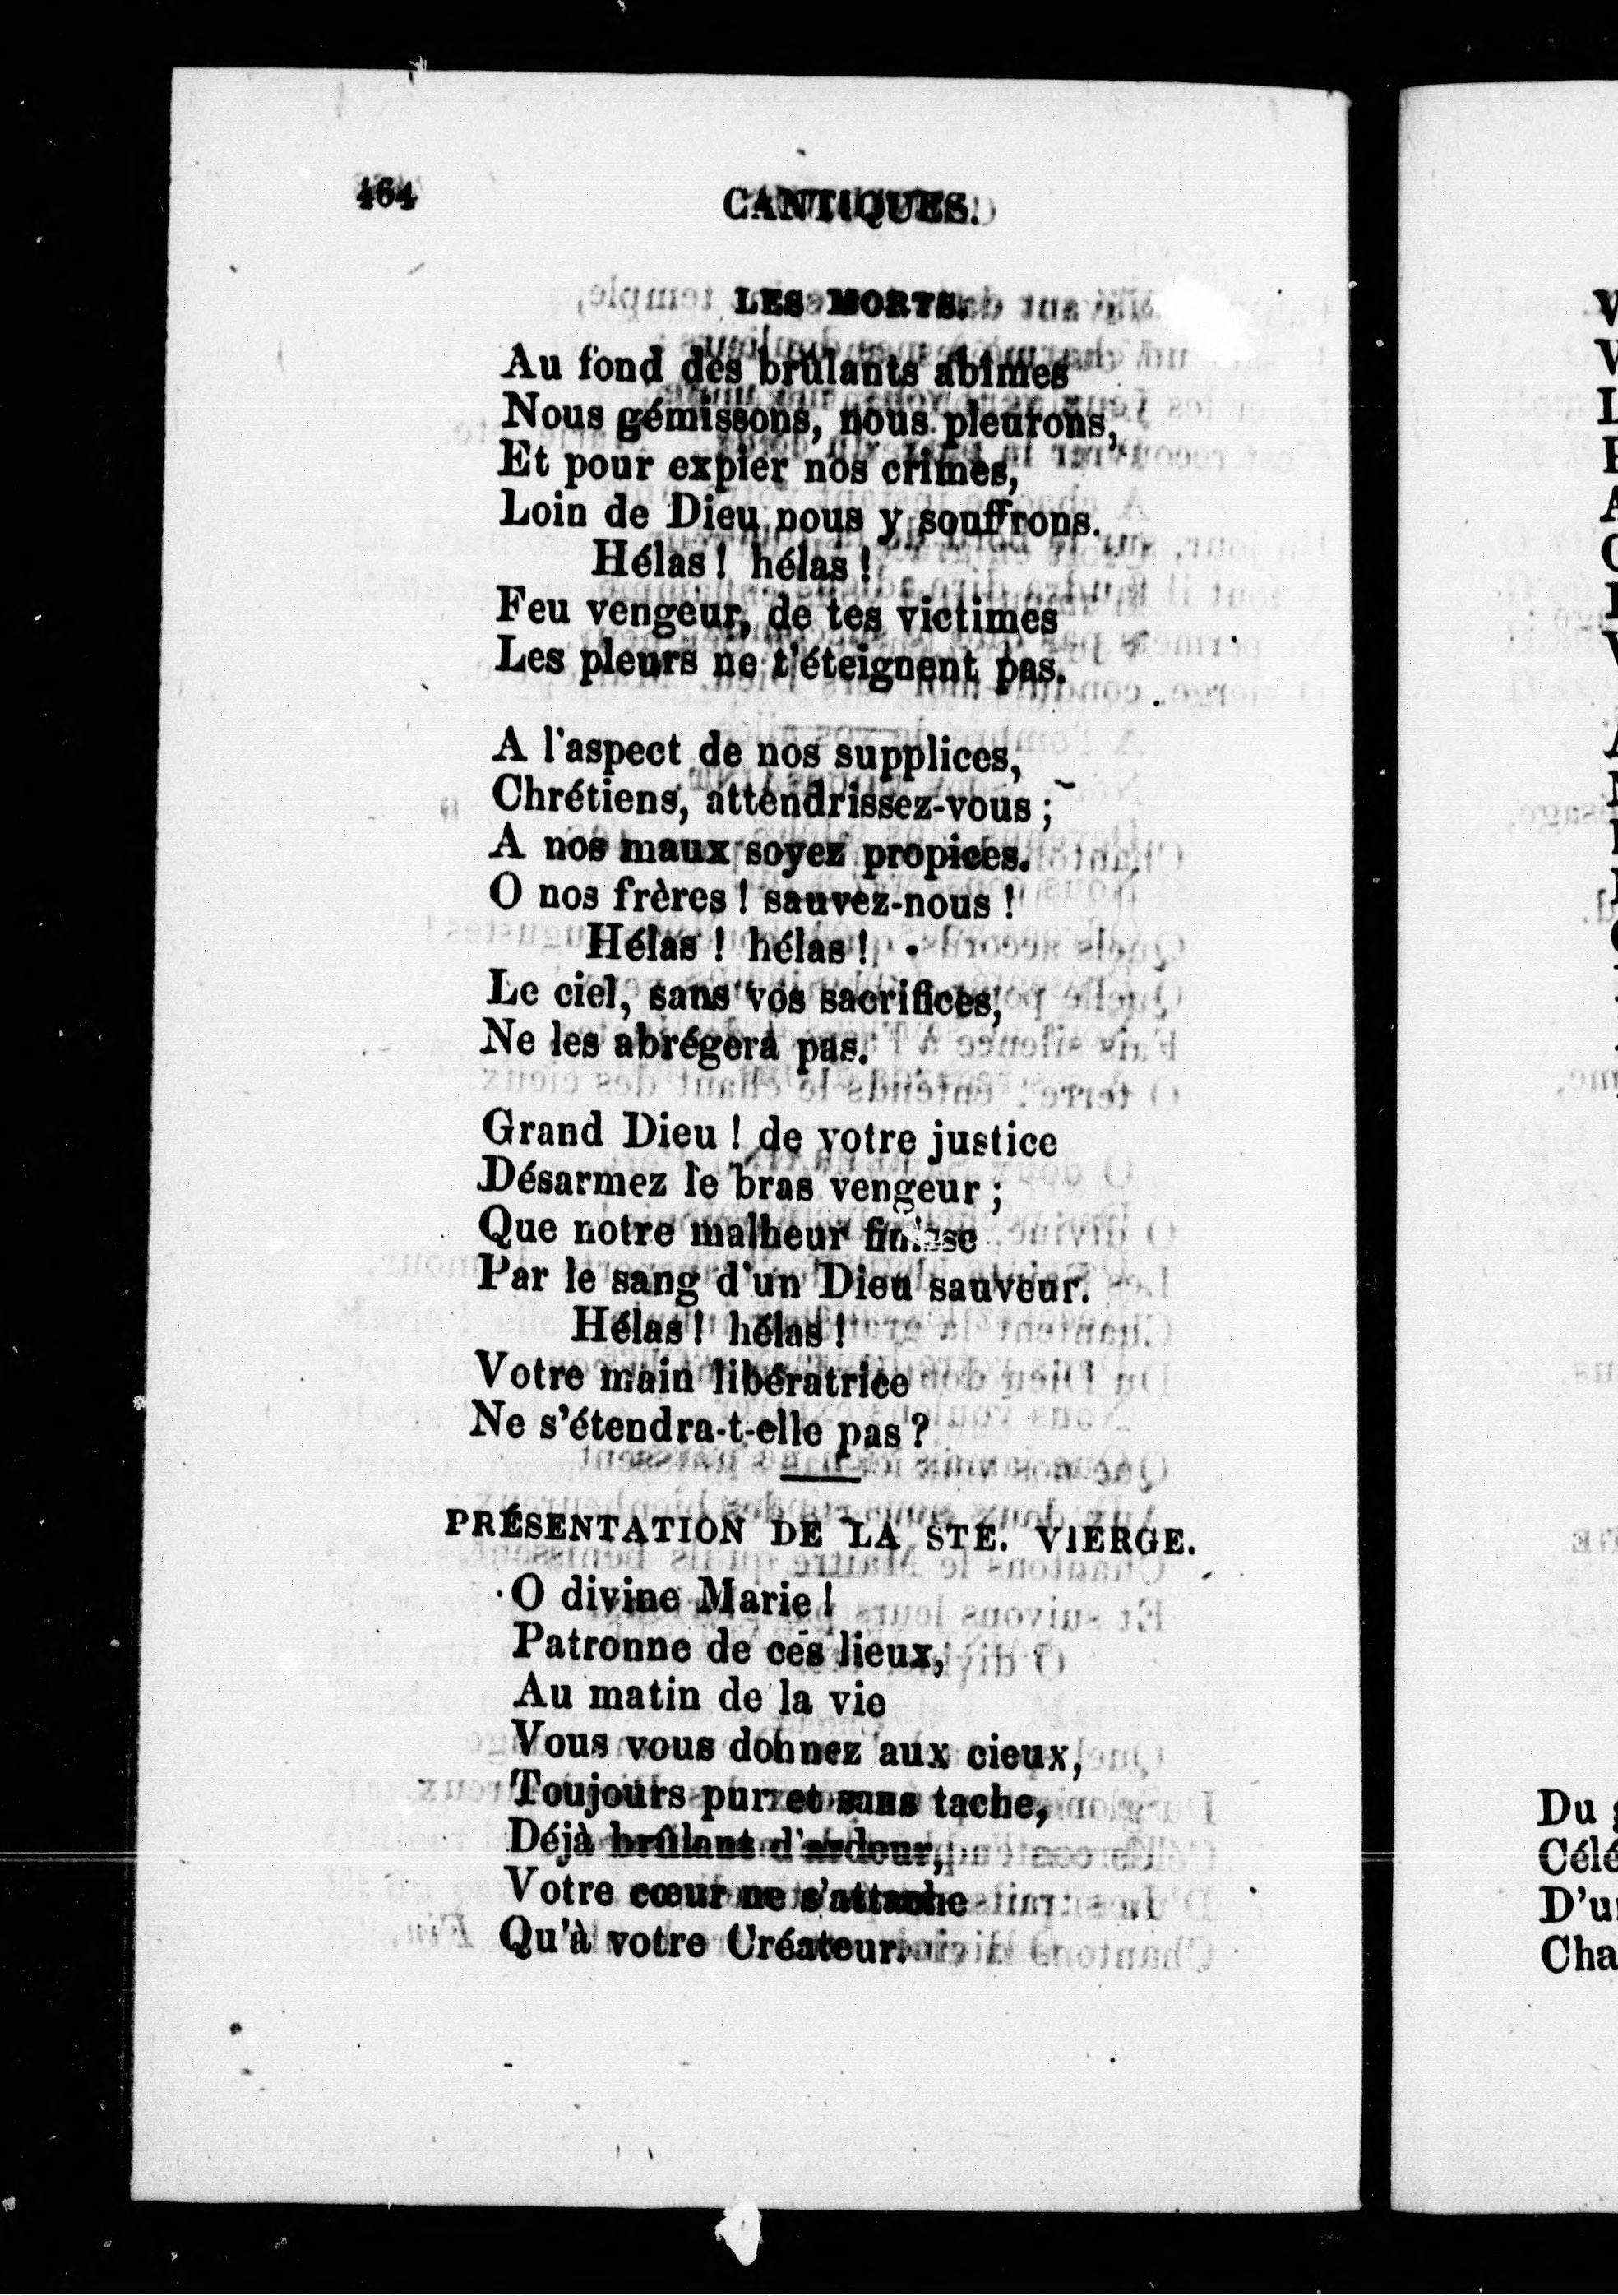 464
CANTIQUES.
LES MORTS.
Au fond des brûlants abîmes
Nous gémissons, nous pleurons,
Et pour expier nos crimes,
Loin de Dieu nous y souffrons.
Hélas ! hélas !
Feu vengeur, de tes victimes
Les pleurs ne t'éteignent pas.
A l'aspect de nos supplices,
Chrétiens, attendrissez-vous ;
A nos maux soyez propices.
O nos frères ! sauvez-nous !
Hélas ! hélas !
Le ciel, sans vos sacrifices,
Ne les abrégera pas.
Grand Dieu ! de votre justice
Désarmez le bras vengeur ;
Que notre malheur finisse
Par le sang d'un Dieu sauveur.
Hélas ! hélas !
Votre main libératrice
Ne s'étendra-t-elle pas ?
PRÉSENTATION DE LA STE. VIERGE.
O divine Marie !
Patronne de ces lieux,
Au matin de la vie
Vous vous donnez aux cieux,
Toujours pur et sans tache,
Déjà brûlant d'ardeur,
Votre cœur ne s'attache
Qu'à votre Créateur.
Du
Célé
D'u
Cha